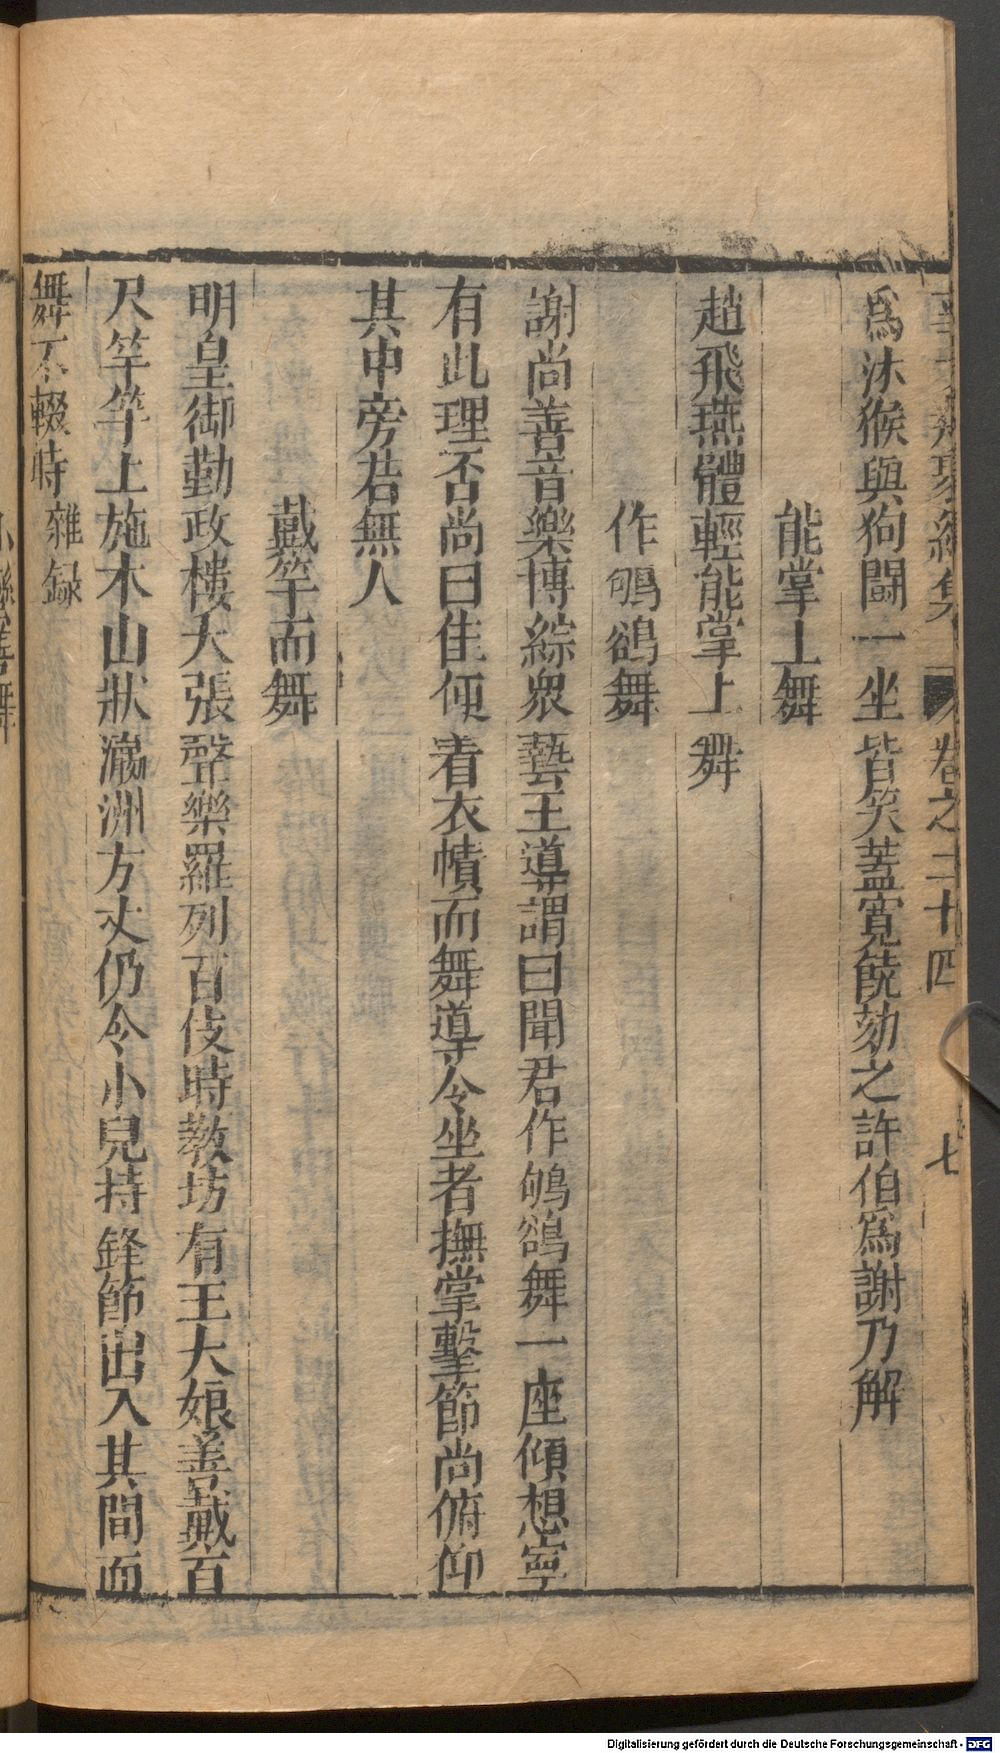 卷之二十四 七
爲沐猴與狗鬪一坐皆笑蓋寬饒劾之許伯爲謝乃解
能掌上舞
趙飛燕體輕能掌上舞
作鴝鵒舞
謝尚善音樂博綜衆藝王導謂曰聞君作鴝鵒舞一座傾想寧
有此理否尚曰佳便着衣幘而舞導令坐者撫掌擊節尚俯仰
其中旁若無人
戴竿而舞
明皇御勤政樓大張聲樂羅列百伎時教坊有王大娘善戴百
尺竿竿上施木山狀瀛洲方丈仍令小兒持鋒節出入其間而
舞不輟時 雜録
Digitalisierung gefördert durch die Deutsche Forschungsgemeinschaft - DFG